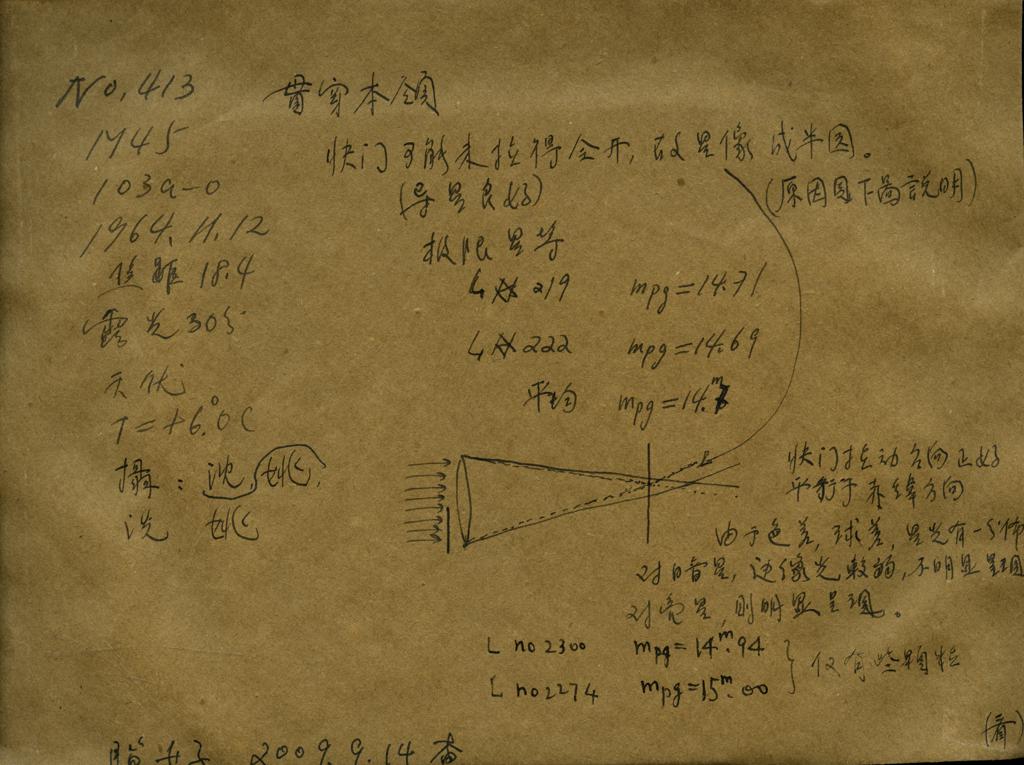 No. 413
1M45
103a-o
1964. 11. 12
焦距 18.4
露光 30分
T = +6.°0 C
攝: 沈, 姚,
洗 姚
快门可能未拉得全开, 故星像成半圆。
(原因見下圖說明)
(导星良好)
极限星等
L № 219 mpg = 14.71
L № 222 mpg = 14.69
平均 mpg = 14.ᵐ7
快门拉动方向正好
平行于赤緯方向
由于色差, 球差, 星光有一分佈
对暗星, 边像光較弱, 不明显呈現
对亮星, 則明显呈現。
L no 2300 mpg = 14ᵐ.94
L no 2274 mpg = 15ᵐ.00
仅有些顆粒
2009. 9. 14 查